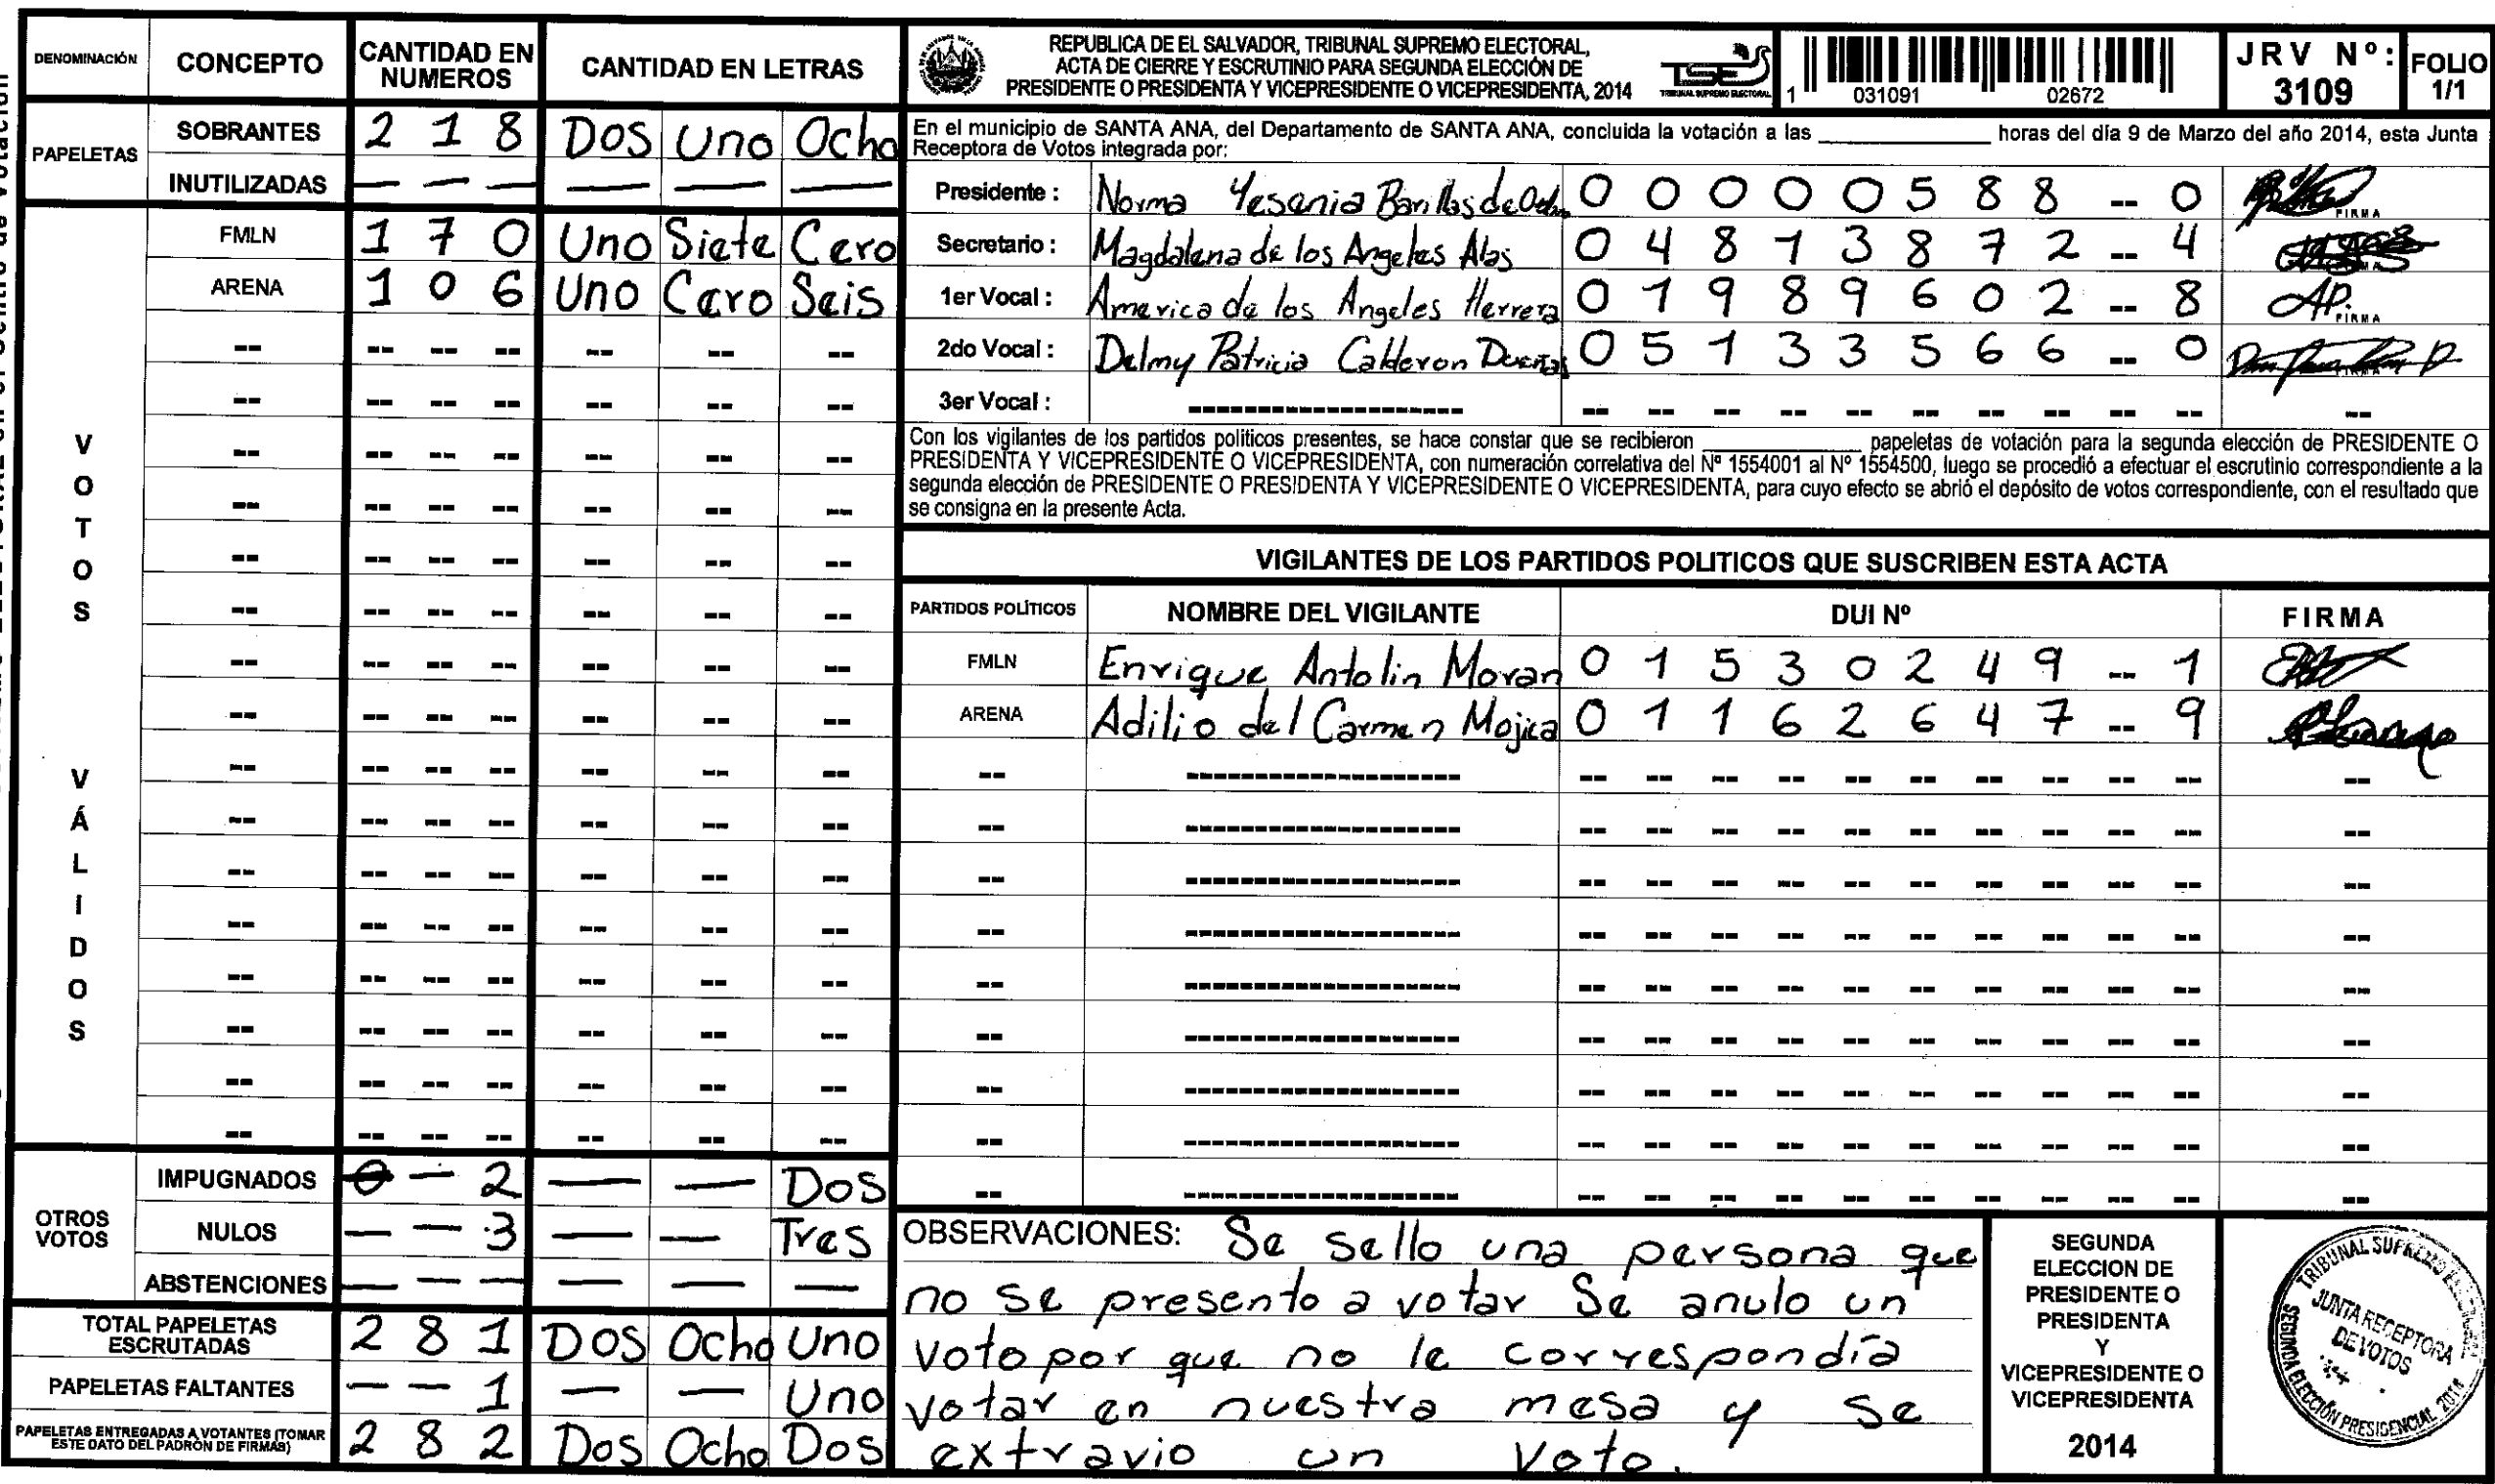 DENOMINACIÓN CONCEPTO CANTIDAD EN NUMEROS CANTIDAD EN LETRAS
PAPELETAS
SOBRANTES 2 1 8 Dos Uno Ocho
INUTILIZADAS — — — — — —
VOTOS VÁLIDOS
FMLN 1 7 0 Uno Siete Cero
ARENA 1 0 6 Uno Cero Seis
OTROS VOTOS
IMPUGNADOS 0 — 2 — — Dos
NULOS — — 3 — — Tres
ABSTENCIONES — — — — — —
TOTAL PAPELETAS ESCRUTADAS 2 8 1 Dos Ocho Uno
PAPELETAS FALTANTES — — 1 — — Uno
PAPELETAS ENTREGADAS A VOTANTES (TOMAR
ESTE DATO DEL PADRÓN DE FIRMAS) 2 8 2 Dos Ocho Dos
REPUBLICA DE EL SALVADOR, TRIBUNAL SUPREMO ELECTORAL,
ACTA DE CIERRE Y ESCRUTINIO PARA SEGUNDA ELECCIÓN DE
PRESIDENTE O PRESIDENTA Y VICEPRESIDENTE O VICEPRESIDENTA, 2014
TSE
TRIBUNAL SUPREMO ELECTORAL
1 031091 02672
JRV Nº: 3109
FOLIO 1/1
En el municipio de SANTA ANA, del Departamento de SANTA ANA, concluida la votación a las ____ horas del día 9 de Marzo del año 2014, esta Junta
Receptora de Votos integrada por:
Presidente : Norma Yesenia Barillas de 0 0 0 0 0 5 8 8 -- 0 FIRMA
Secretario : Magdalena de los Angeles Alas 0 4 8 1 3 8 7 2 -- 4
1er Vocal : America de los Angeles Herrera 0 1 9 8 9 6 0 2 -- 8 FIRMA
2do Vocal : Delmy Patricia Calderon Dueñas 0 5 1 3 3 5 6 6 -- 0
3er Vocal :
Con los vigilantes de los partidos políticos presentes, se hace constar que se recibieron ____ papeletas de votación para la segunda elección de PRESIDENTE O
PRESIDENTA Y VICEPRESIDENTE O VICEPRESIDENTA, con numeración correlativa del Nº 1554001 al Nº 1554500, luego se procedió a efectuar el escrutinio correspondiente a la
segunda elección de PRESIDENTE O PRESIDENTA Y VICEPRESIDENTE O VICEPRESIDENTA, para cuyo efecto se abrió el depósito de votos correspondiente, con el resultado que
se consigna en la presente Acta.
VIGILANTES DE LOS PARTIDOS POLITICOS QUE SUSCRIBEN ESTA ACTA
PARTIDOS POLÍTICOS NOMBRE DEL VIGILANTE DUI Nº FIRMA
FMLN Enrique Antolin Moran 0 1 5 3 0 2 4 9 -- 1
ARENA Adilio del Carmen Mojica 0 1 1 6 2 6 4 7 -- 9
OBSERVACIONES: Se sello una persona que
no se presento a votar Se anulo un
voto por que no le correspondía
votar en nuestra mesa y se
extravio un voto.
SEGUNDA
ELECCION DE
PRESIDENTE O
PRESIDENTA
Y
VICEPRESIDENTE O
VICEPRESIDENTA
2014
TRIBUNAL SUPREMO
JUNTA RECEPTORA
DE VOTOS
SEGUNDA ELECCIÓN PRESIDENCIAL 2014